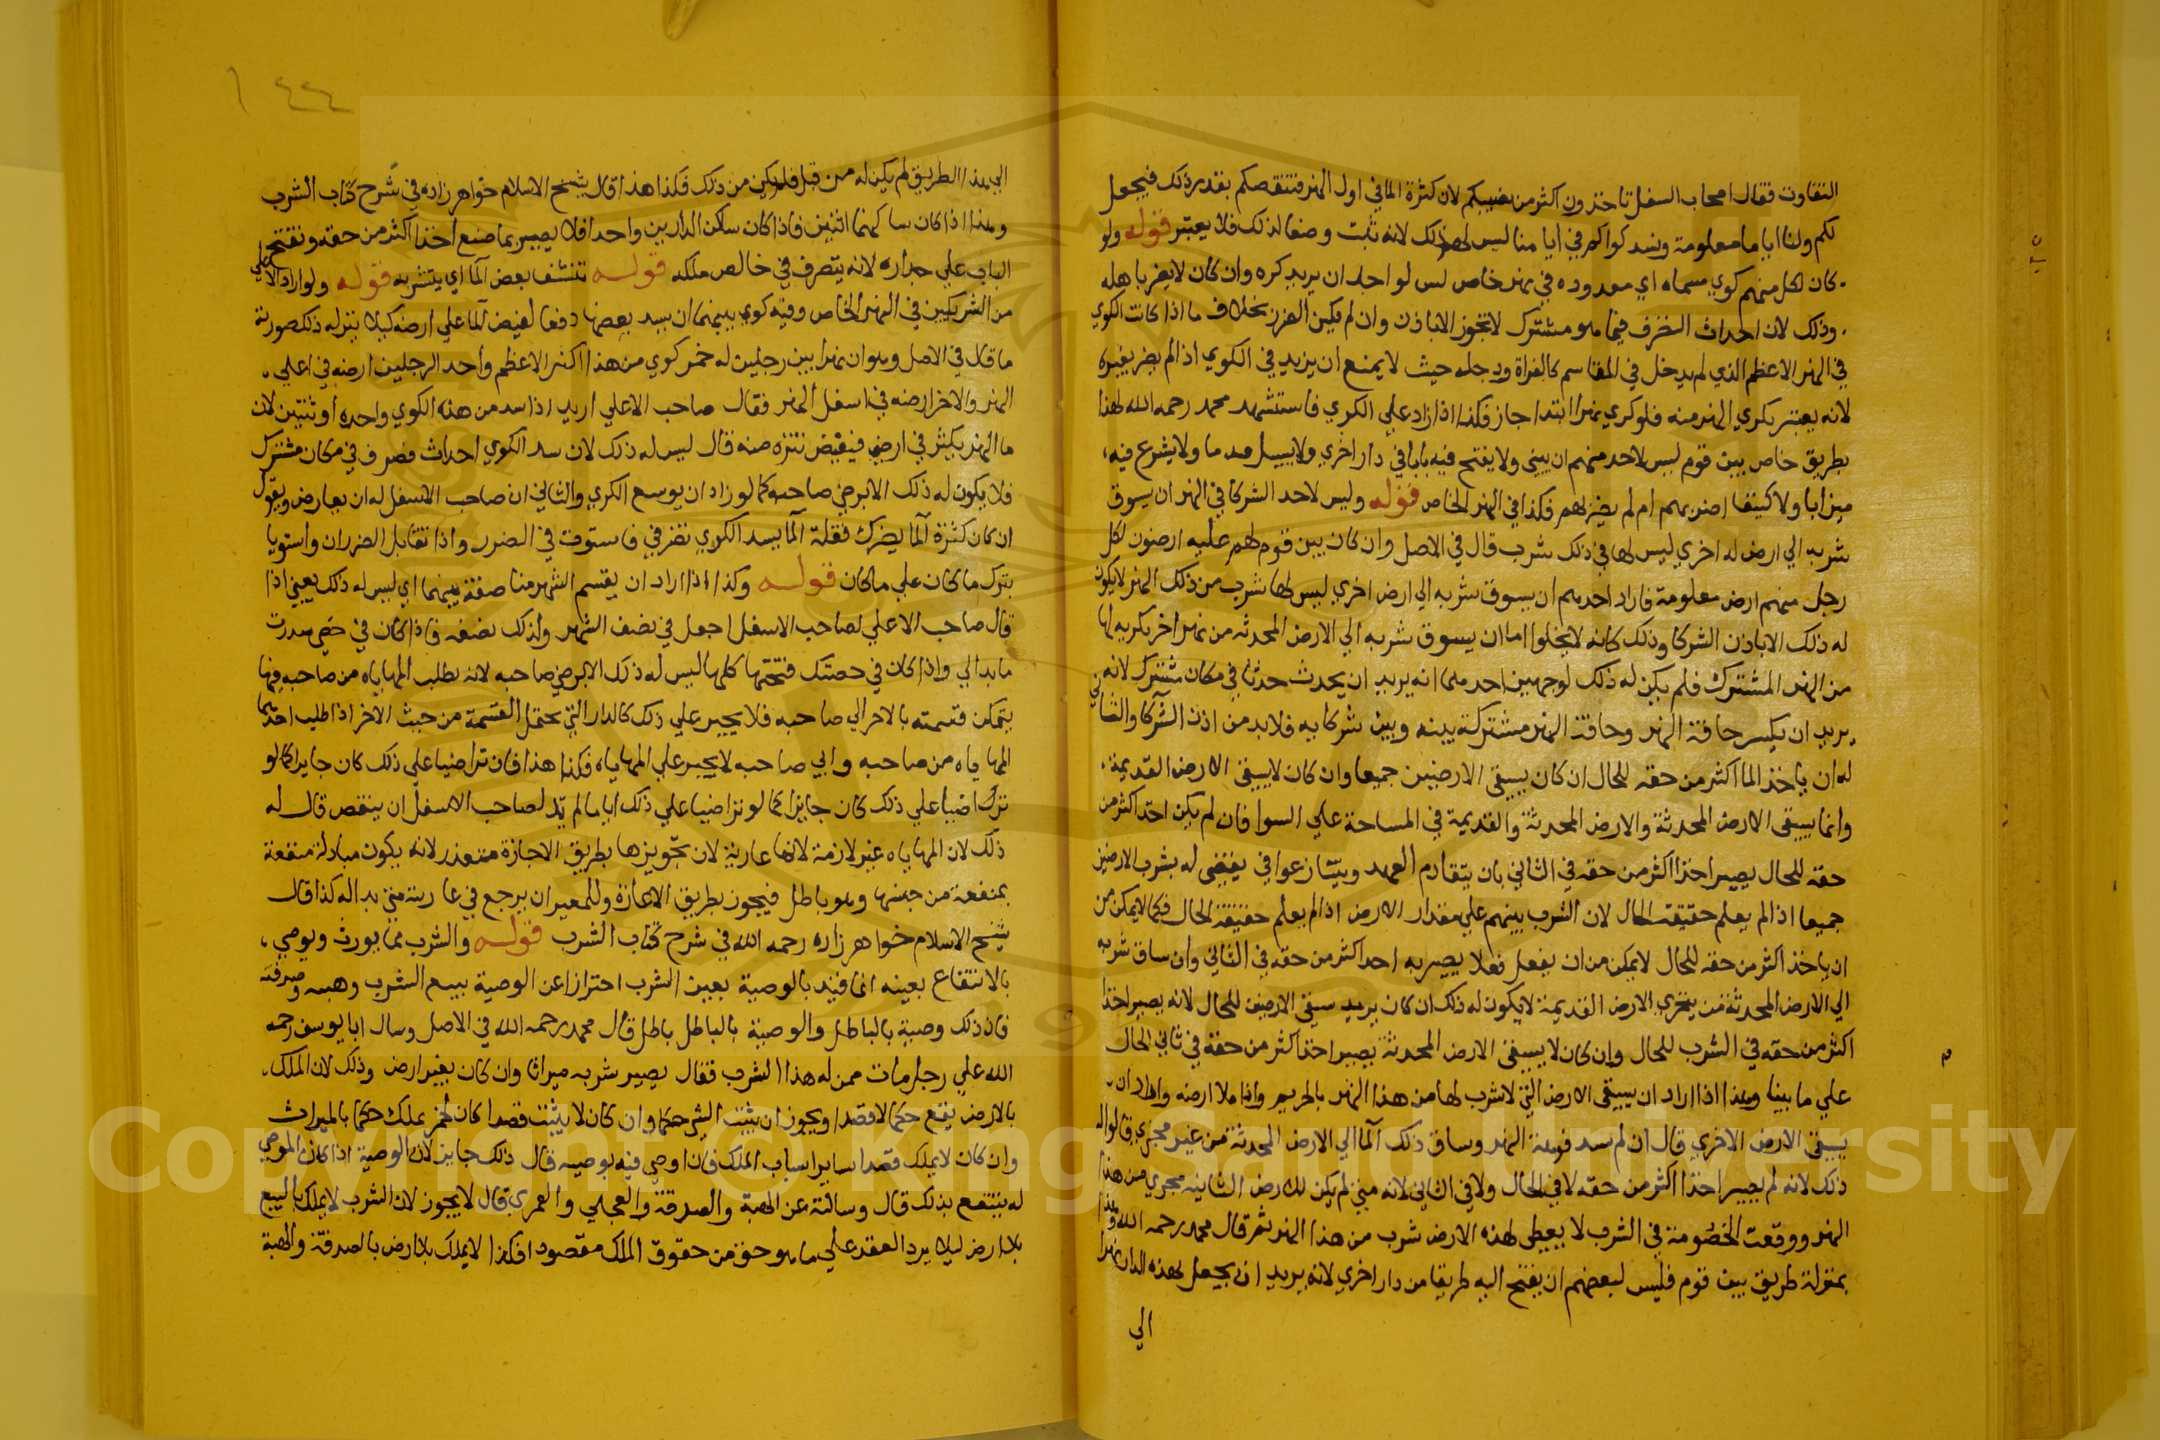 التفاوت فقال اصحاب السفل تاخذون اكثر من نصيبكم لان كثرة الما في اول النهر فننقصكم بقدر ذلك فيجعل
لكم ولنا اياما معلومة ونسد كواكم في ايا منا ليس لهم ذلك لانه تثبت وضعا لذلك فلا يعتبر قوله ولو
كان لكل منهم كوي مسماه اي معدوده في نهر خاص ليس لو احد ان يزيد كوه وان كان لا يضر باهله
وذلك لان احداث التصرف فيما هو مشترك لا تجوز الا باذن وان لم يكن الضرر بخلاف ما اذا كانت الكوي
في النهر الاعظم الذي لم يدخل في المقاسم كالفراة ودجله حيث لا يمنع ان يزيد في الكوي اذ الم يضر بغيره
لانه يعتبر بكري النهر منه فلو كري نهرا ابتدا جاز فكذا اذا زاد علي الكوي فاستشهد محمد رحمه الله لهذا
بطريق خاص بين قوم ليس لاحد منهم ان يبني ولا يفتح فيه بابا في دار اخري ولا يسيل ما ولا يشرع فيه
ميزابا ولا كنيفا اضر بهم ام لم يضر لهم فكذا في النهر الخاص قوله وليس لاحد الشركا في النهر ان يسوق
شربه الي ارض له اخري ليس لها في ذلك شرب قال في الاصل وان كان بين قوم لهم عليه ارضون لكل
رجل منهم ارض معلومة فاراد احدهم ان يسوق شربه الي ارض اخري ليس لها شرب من ذلك النهر لا يكون
له ذلك الا باذن الشركا وذلك كانه لا يخلوا اما ان يسوق شربه الي الارض المحدثه من نهر اخر يكريه لها
من النهر المشترك فلم يكن له ذلك لوجهين احدهما انه يريد ان يحدث حدثا في مكان مشترك لانه
يريد ان يكسر حافة النهر وحافة النهر مشتركة بينه وبين شركايه فلا بد من اذن الشركا والثاني
له ان ياخذ الما اكثر من حقه للحال ان كان يسقي الارضين جميعا وان كان لا يسقي الارض القديمة
وانما يسقي الارض المحدثة والارض المحدثة والقديمة في المساحة علي السوا فان لم يكن اخذ اكثر من
حقه للحال يصير اخذا اكثر من حقه في الثاني بان يتقادم العهد ويتنازعوا في يقضي له بشرب الارضين
جميعا اذ الم يعلم حقيقة الحال لان الشرب بينهم علي مقدار الارض اذ الم يعلم حقيقة الحال فكما لا يمكن من
ان ياخذ اكثر من حقه للحال لا يمكن من ان يفعل فعلا يصير به اخذ اكثر من حقه في الثاني وان ساق شربه
الي الارض المحدثة من الارض القديمة لا يكون له ذلك ان كان يريد سقي الارضين للحال لانه يصير اخذا
اكثر من حقه في الشرب للحال وان كان لا يسقي الارض المحدثة يصير اخذا اكثر من حقه في ثاني الحال
علي ما بينا وهذا اذا اراد ان يسقي الارض التي لا شرب لها من هذا النهر واذا ملا ارضه واراد ان
يسقي الارض الاخري قال ان لم سد فوهة النهر وساق ذلك الما الي الارض المحدثة من غير مجري قالوا له
ذلك لانه لم يصير اخذا اكثر من حقه لا في الحال ولا في الثاني لانه متي لم يكن للارض الثانيه مجري من هذا
النهر ووقعت الخصومة في الشرب لا يعطي لهذه الارض شرب من هذا النهر ثم قال محمد رحمه الله وهذا
بمنزلة طريق بين قوم فليس لبعضهم ان يفتح اليه طريقا من دار اخري لانه يريد ان يجعل لهذه الدار نهرا
الي
١٤٤
الي هذا الطريق لم يكن له من قبل فلم يكن من ذلك فكذا هذا قال شيخ الاسلام خواهر زاده في شرح كتاب الشرب
وهذا اذا كان ساكنهما اثنين فاذا كان ساكن الدارين واحدا فلا يصير بما صنع اخذا اكثر من حقه ونفتح
الباب علي جداره لانه يتصرف في خالص ملكه قوله تنشف بعض الما اي يتشربه قوله ولو اراد الاعلي
من الشريكين في النهر الخاص وفيه كوي بينهما ان يسد بعضها دفعا لفيض الما علي ارضه كيلا ينزله ذلك صورته
ما قال في الاصل وهو ان نهرا بين رجلين له خمس كوي من هذا النهر الاعظم واحد الرجلين ارضه في اعلي
النهر والاخر ارضه في اسفل النهر فقال صاحب الاعلي اريد اذا سد من هذه الكوي واحده او ثنتين لان
ما النهر يكثر في ارضي فيفيض نتنزه منه قال ليس له ذلك لان سد الكوي احداث فصرف في مكان مشترك
فلا يكون له ذلك الا برضي صاحبه كما لو زاد ان يوسع الكري والثاني ان صاحب الاسفل له ان يعارض ويقول
ان كان كثرة الما يضرك فقلة الما بسد الكوي تضر في فاستوت في الضرر واذا تقابل الضرران واستويا
بترك ما كان علي ما كان قوله وكذا اذا اراد ان يقسم الشهر مناصفة بينهما اي ليس له ذلك يعني اذا
قال صاحب الاعلي لصاحب الاسفل اجعل في نصف الشهر ولك نصفه فاذا كان في حصي سددت
ما بدالي واذا كان في حصتك فتحتها كلها ليس له ذلك الا برضي صاحبه لانه يطلب المهاياه من صاحبه فيها
يتمكن قسمته بالاخر الي صاحبه فلا يجبر علي ذلك كالدار التي يحتمل القسمة من حيث الاخر اذا طلب احدهما
المهاياه من صاحبه وابي صاحبه لا يجبر علي المهاياه فكذا هذا فان تراضيا علي ذلك كان جايزا كالو
تراضيا علي ذلك كان جايزا كما لو تراضيا علي ذلك اياما لم بد لصاحب الاسفل ان ينقض قال له
ذلك لان المهاياه غير لازمة لانها عارية لان تجويزها بطريق الاجازة متعذر لانه يكون مبادلة منفعة
بمنفعة من جنسها وهو باطل فيجوز بطريق الاعارة وللمعير ان يرجع في عاريته متي بداله كذا قال
شيخ الاسلام خواهر زاده رحمه الله في شرح كتاب الشرب قوله والشرب مما يورث ويوصي
بالانتفاع بعينه انما قيد بالوصية بعين الشرب احترازا عن الوصية ببيع الشرب وهبه وصدقته
فان ذلك وصية بالباطل والوصية بالباطل باطل قال محمد رحمه الله في الاصل وسال ابا يوسف رحمه
الله علي رجل مات ممن له هذا الشرب فقال يصير شربه ميراثا وان كان بغير ارض وذلك لان الملك
بالارض يقع حكما لا قصدا ويجوز ان يثبت الشي حكما وان كان لا يثبت قصدا كان الخمر يملك حكما بالميراث
وان كان لا يملك قصدا ساير اسباب الملك فان اوصي فيه بوصيه قال ذلك جايز لان الوصية اذا كان الموصي
له ينتفع بذلك قال وسالته عن الهبة والصدقة والعجلي والعمري قال لا يجوز لان الشرب لا يملك بالبيع
بلا ارض ليلا يرد العقد علي ما هو حق من حقوق الملك مقصود افكذا لا يملك بلا ارض بالصدقة والهبة
Copyright © King Saud University